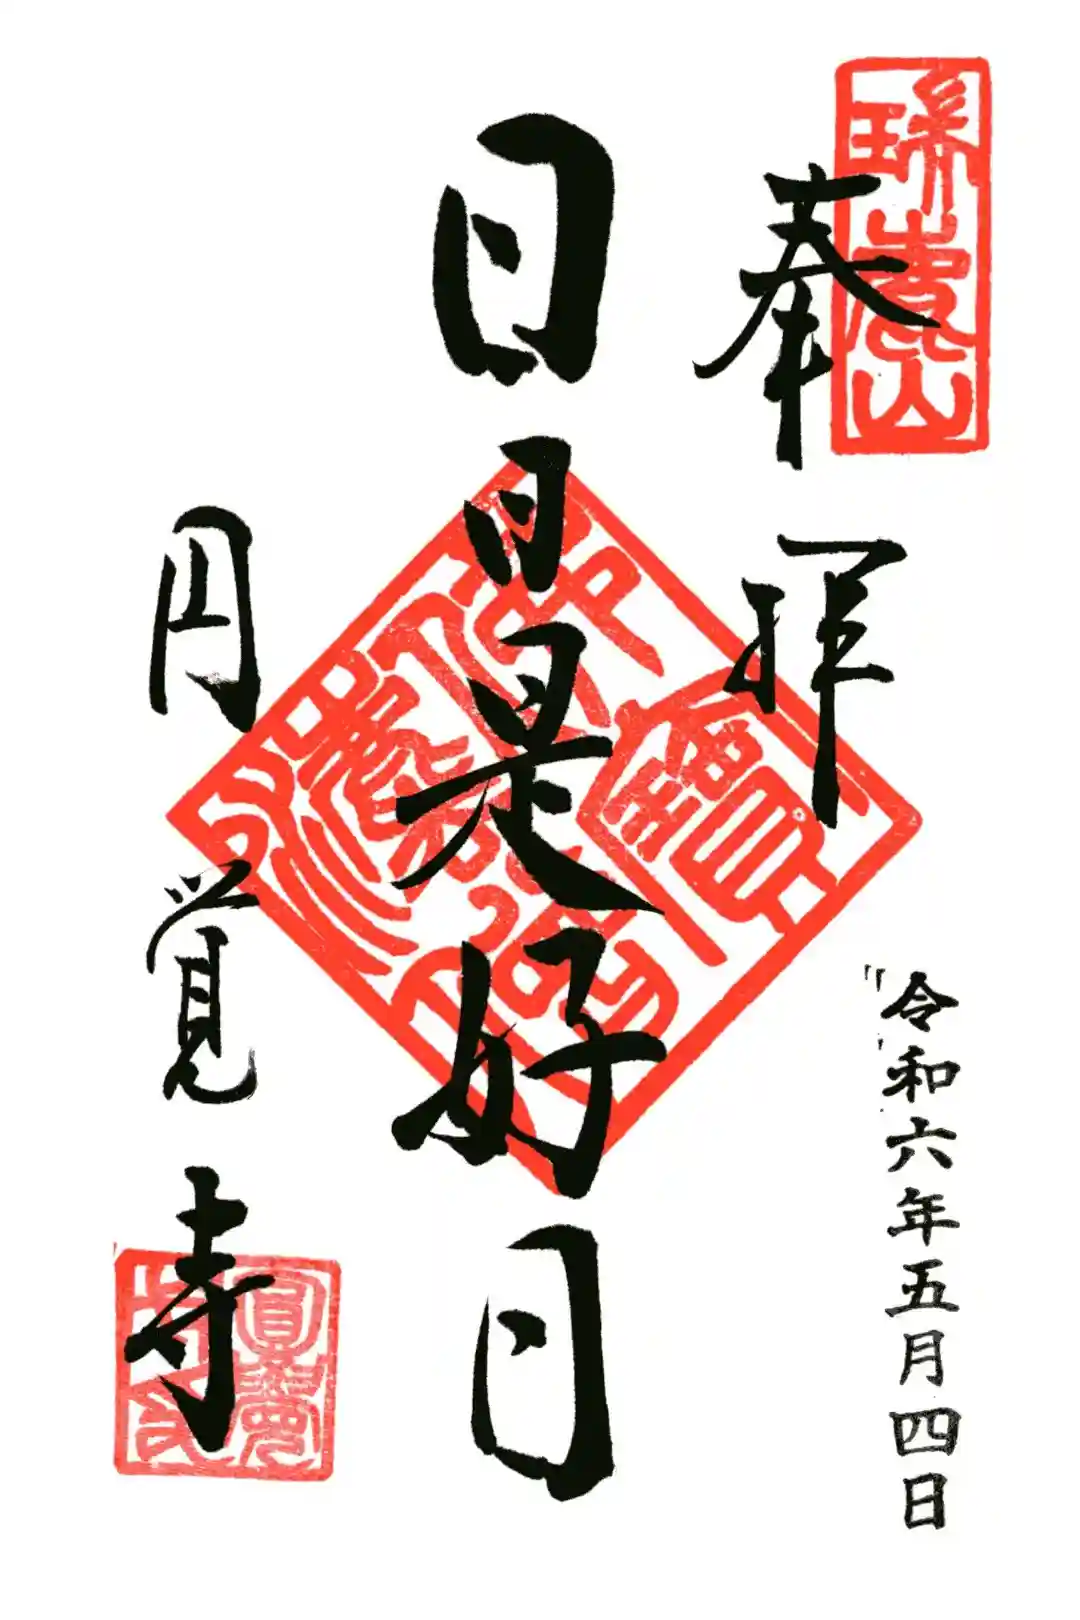 瑞鹿山
奉拝
令和六年五月四日
日日是好日
佛法僧寶
円覚寺